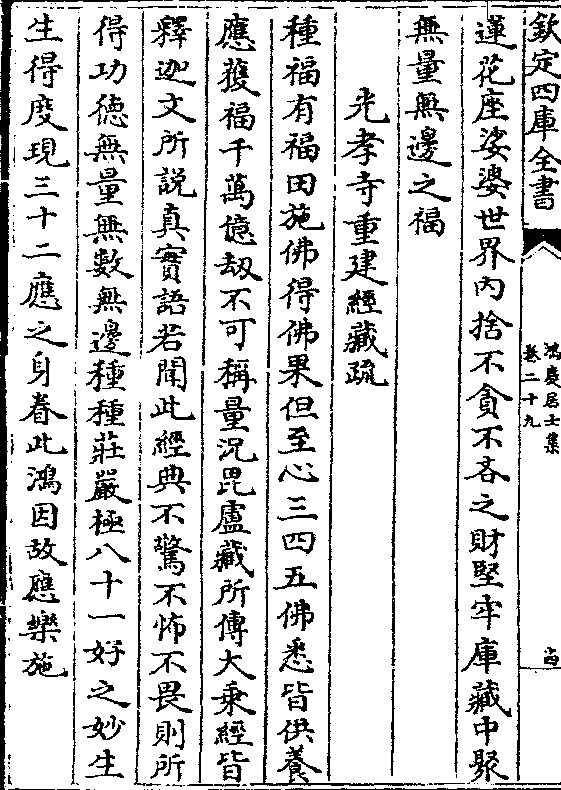 欽定四庫全書
鴻慶居士集
卷二十九
蓮花座娑婆世界内捨不貪不吝之財堅牢庫藏中聚
無量無邊之福
光孝寺重建經藏疏
種福有福田施佛得佛果但至心三四五佛悉皆供養
應獲福千萬億劫不可稱量況毘盧藏所傳大乘經皆
釋迦文所説真實語若聞此經典不驚不怖不畏則所
得功德無量無數無邊種種莊嚴極八十一好之妙生
生得度現三十二應之身眷此鴻因故應樂施